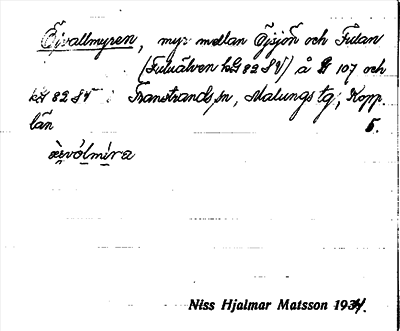 Öjvallmyren, myr mellan Öjsjön och Fulan
(Fuluälven kbl 82 SV) å bl 107 och
kbl 82 SV i Transtrands sn, Malungs tg, Kopp.
län 5.
Niss Hjalmar Matsson 1934.